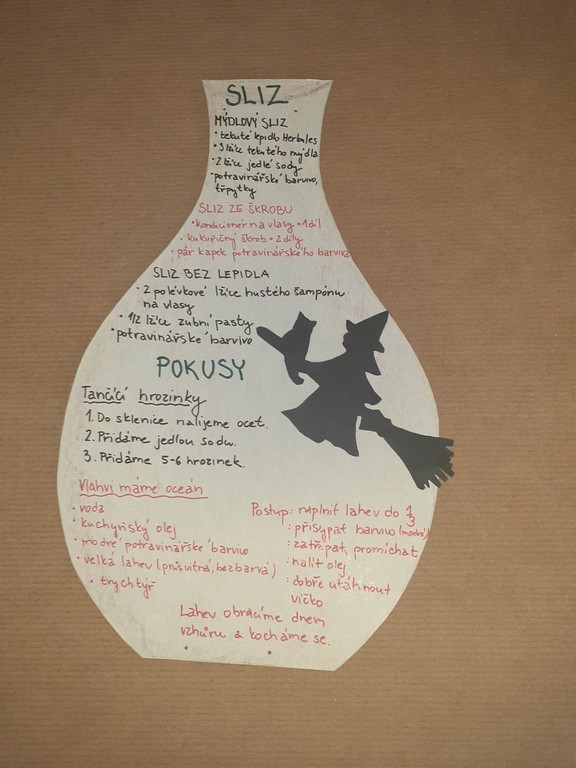 SLIZ
MÝDLOVÝ SLIZ
• tekuté lepidlo Herkules
• 3 lžíce tekutého mýdla
• 2 lžíce jedlé sody
• potravinářské barvivo,
třpytky
SLIZ ZE ŠKROBU
• kondicionér na vlasy • 1 díl
• kukuřičný škrob • 2 díly
• pár kapek potravinářského barviva
SLIZ BEZ LEPIDLA
• 2 polévkové lžíce hustého šampónu
na vlasy
• 1/2 lžíce zubní pasty
• potravinářské barvivo
POKUSY
Tančící hrozinky
1. Do sklenice nalijeme ocet.
2. Přidáme jedlou sodu.
3. Přidáme 5-6 hrozinek.
V lahvi máme oceán
• voda
• kuchyňský olej
• modré potravinářské barvivo
• velká lahev (průsvitná, bezbarvá)
• trychtýř
Postup: naplnit lahev do 1/3
: přisypat barvivo (modré)
: zatřepat, promíchat
: nalít olej
: dobře utáhnout
víčko
Lahev obracíme dnem
vzhůru a kocháme se.